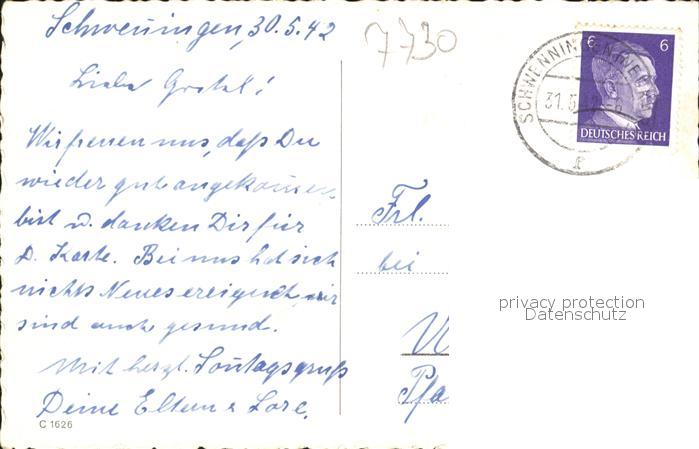 Schwenningen, 30.5.42
7730
Liebe Gretel!
Wir freuen uns, daß Du
wieder gut angekommen
bist u. danken Dir für
D. Karte. Bei uns hat sich
nichts Neues ereignet, wir
sind auch gesund.
Mit herzl. Sonntagsgruß
Deine Eltern & Lore.
C 1626
6 6
DEUTSCHES REICH
SCHWENNINGEN (NECKAR)
31.5.42
Frl.
bei
Pfa
privacy protection
Datenschutz